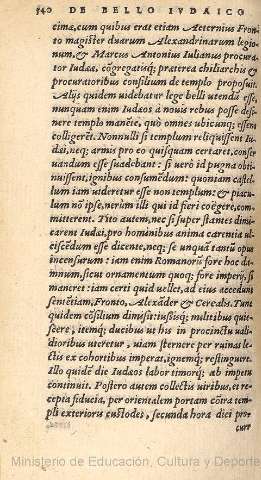 540 DE BELLO IVDAICO
cimæ, cum quibus erat etiam Aeternius Fron-
to magister duarum Alexandrinarum legio-
num, & Marcus Antonius Iulianus procura-
tor Iudææ, cōgregatisq; præterea chiliarchis &
procuratoribus consilium de templo proposuit.
Alijs quidem uidebatur lege belli utendū esse,
nunquam enim Iudæos à nouis rebus posse desi-
nere templo manēte, quò omnes ubicunq; essent
colligerēt. Nonnulli si templum reliquissent Iu-
dæi, neq; armis pro eo quisquam certaret, conser-
uandum esse suadebant: si uerò id pugna obti-
nuissent, ignibus consumēdum: quoniam castel-
lum iam uideretur esse non templum: & piacu-
lum nō ipse, uerùm illi qui id fieri coëgere, com-
mitterent. Tito autem, nec si super stantes dimi-
carent Iudæi, pro hominibus anima carentia ul-
ciscēdum esse dicente, neq; se unquā tantū opus
incensurum: iam enim Romanorū fore hoc dā-
mnum, sicut ornamentum quoq; fore imperij, si
maneret: iam certi quid uellet, ad eius accedunt
sentētiam, Fronto, Alexāder & Cerealis. Tunc
quidem cōsilium dimisit: iussisq; militibus quie-
scere, itemq; ducibus ut his in procinctu uali-
dioribus uteretur, uiam sternere per ruinas le-
ctis ex cohortibus imperat, ignemq; restinguere.
Illo quidē die Iudæos labor timorq; ab impetu
continuit. Postero autem collectis uiribus, et re-
cepta fiducia, per orientalem portam cōtra tem-
pli exterioris custodes, secunda hora diei pro-
cure
Ministerio de Educación, Cultura y Deporte